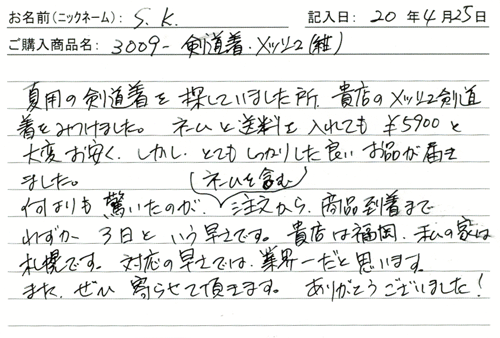 お名前(ニックネーム): S. K. 記入日: 20 年 4月 25日
ご購入商品名: 3009- 剣道着・メッシュ(紺)
夏用の剣道着を探していました所、貴店のメッシュ剣道
着をみつけました。 ネームと送料を入れても ¥5900 と
大変お安く、しかし、とてもしっかりした良いお品が届き
ました。
(ネームを含む)
何よりも驚いたのが、注文から、商品到着まで
わずか 3日という早さです。貴店は福岡、私の家は
札幌です。対応の早さでは、業界一だと思います。
また、ぜひ 寄らせて頂きます。 ありがとうございました!